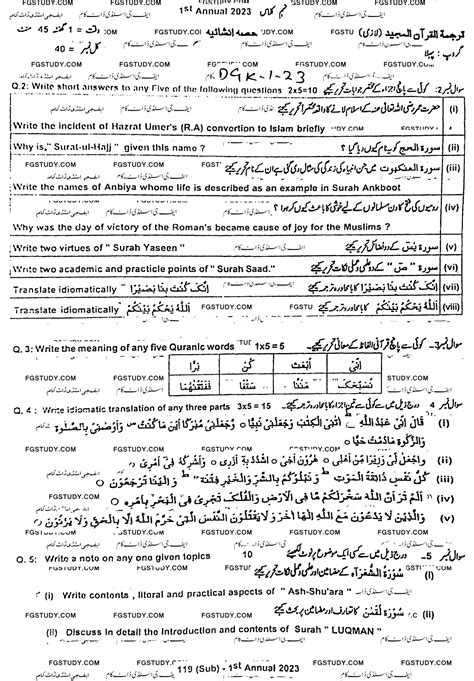 1st Annual 2023
ترجمۃ القرآن المجید (لازمی) حصہ انشائیہ
گروپ: پہلا
کل نمبر = 40
DGK-1-23
Q.2: Write short answers to any Five of the following questions 2x5=10
(i) حضرت عمر رضی اللہ تعالیٰ عنہ کے اسلام لانے کا واقعہ مختصراً تحریر کیجیے
Write the incident of Hazrat Umer's (R.A) convertion to Islam briefly
(ii) سورۃ الحج کو یہ نام کیوں دیا گیا؟
Why is," Surat-ul-Hajj" given this name ?
(iii) سورۃ العنکبوت میں جن انبیاء کی زندگی کی مثال دی گئی ہے ان کے نام تحریر کیجیے
Write the names of Anbiya whome life is described as an example in Surah Ankboot
(iv) رومیوں کی فتح کا دن مسلمانوں کے لیے خوشی کا باعث کیوں کر ہوا؟
Why was the day of victory of the Roman's became cause of joy for the Muslims ?
(v) سورۃ یٰسٓ کے دو فضائل تحریر کیجیے
Write two virtues of " Surah Yaseen "
(vi) سورۃ "صٓ" کے دو علمی و عملی نکات تحریر کیجیے
Write two academic and practicle points of " Surah Saad."
(vii) اِنَّكَ كُنْتَ بِنَا بَصِيْرًا کا بامحاورہ ترجمہ کیجیے
Translate idiomatically اِنَّكَ كُنْتَ بِنَا بَصِيْرًا
(viii) اَللّٰهُ يَحْكُمُ بَيْنَكُمْ کا بامحاورہ ترجمہ کیجیے
Translate idiomatically اَللّٰهُ يَحْكُمُ بَيْنَكُمْ
سوال نمبر 3- کوئی سے پانچ قرآنی الفاظ کے معانی تحریر کیجیے
Q. 3: Write the meaning of any five Quranic words 1x5 = 5
اِنِّىْ اَبْعَثَ كُنْ نِرًا
نُسَبِّحَكَ مِتْنَا سُقْنَا فَفَتَقْنٰهُمَا
سوال نمبر 4 درج ذیل میں سے کوئی سے تین اجزاء کا بامحاورہ ترجمہ کیجیے
Q. 4 : Write idiomatic translation of any three parts 3x5 = 15
(i) قَالَ اِنِّىْ عَبْدُ اللّٰهِ اٰتٰنِىَ الْكِتٰبَ وَجَعَلَنِىْ نَبِيًّا وَّجَعَلَنِىْ مُبٰرَكًا اَيْنَ مَا كُنْتُ وَاَوْصٰنِىْ بِالصَّلٰوةِ
وَالزَّكٰوةِ مَادُمْتُ حَيًّا
(ii) وَاجْعَلْ لِّىْ وَزِيْرًا مِّنْ اَهْلِىْ هٰرُوْنَ اَخِى اشْدُدْ بِهٖ اَزْرِىْ وَاَشْرِكْهُ فِىْ اَمْرِىْ
(iii) كُلُّ نَفْسٍ ذَآئِقَةُ الْمَوْتِ وَنَبْلُوْكُمْ بِالشَّرِّ وَالْخَيْرِ فِتْنَةً وَاِلَيْنَا تُرْجَعُوْنَ
(iv) اَلَمْ تَرَ اَنَّ اللّٰهَ سَخَّرَ لَكُمْ مَّا فِى الْاَرْضِ وَالْفُلْكَ تَجْرِىْ فِى الْبَحْرِ بِاَمْرِهٖ
(v) وَالَّذِيْنَ لَا يَدْعُوْنَ مَعَ اللّٰهِ اِلٰهًا اٰخَرَ وَلَا يَقْتُلُوْنَ النَّفْسَ الَّتِىْ حَرَّمَ اللّٰهُ اِلَّا بِالْحَقِّ وَلَا يَزْنُوْنَ
سوال نمبر 5- درج ذیل میں سے کسی ایک موضوع پر نوٹ لکھیے
Q. 5: Write a note on any one given topics 10
(i) سُوْرَۃُ الشُّعَرَآءِ کے مضامین اور علمی و عملی نکات تحریر کیجیے
(i) Write contents , litoral and practical aspects of " Ash-Shu'ara "
(ii) سُوْرَۃُ لُقْمٰنَ کا تعارف اور مضامین پر بحث کیجیے
(ii) Discuss in detail the introduction and contents of Surah " LUQMAN "
119 (Sub) - 1st Annual 2023
FGSTUDY.COM
ایف جی اسٹڈی ڈاٹ کام